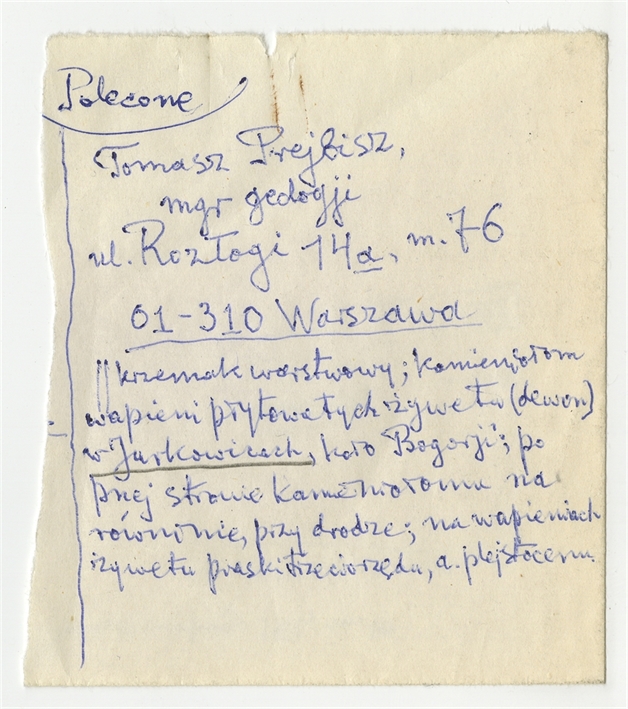 Polecone
Tomasz Prejbisz,
mgr geologji
ul. Rozłogi 14a, m. 76
01-310 Warszawa
krzemak warstwowy; kamieniołom
wapieni płytowatych żywetu (dewon)
w Jurkowicach, koło Bogorji; po
płnej stronie kamieniołomu na
równinie, przy drodze; na wapieniach
żywetu piaski trzeciorzędu, a. plejstocenu